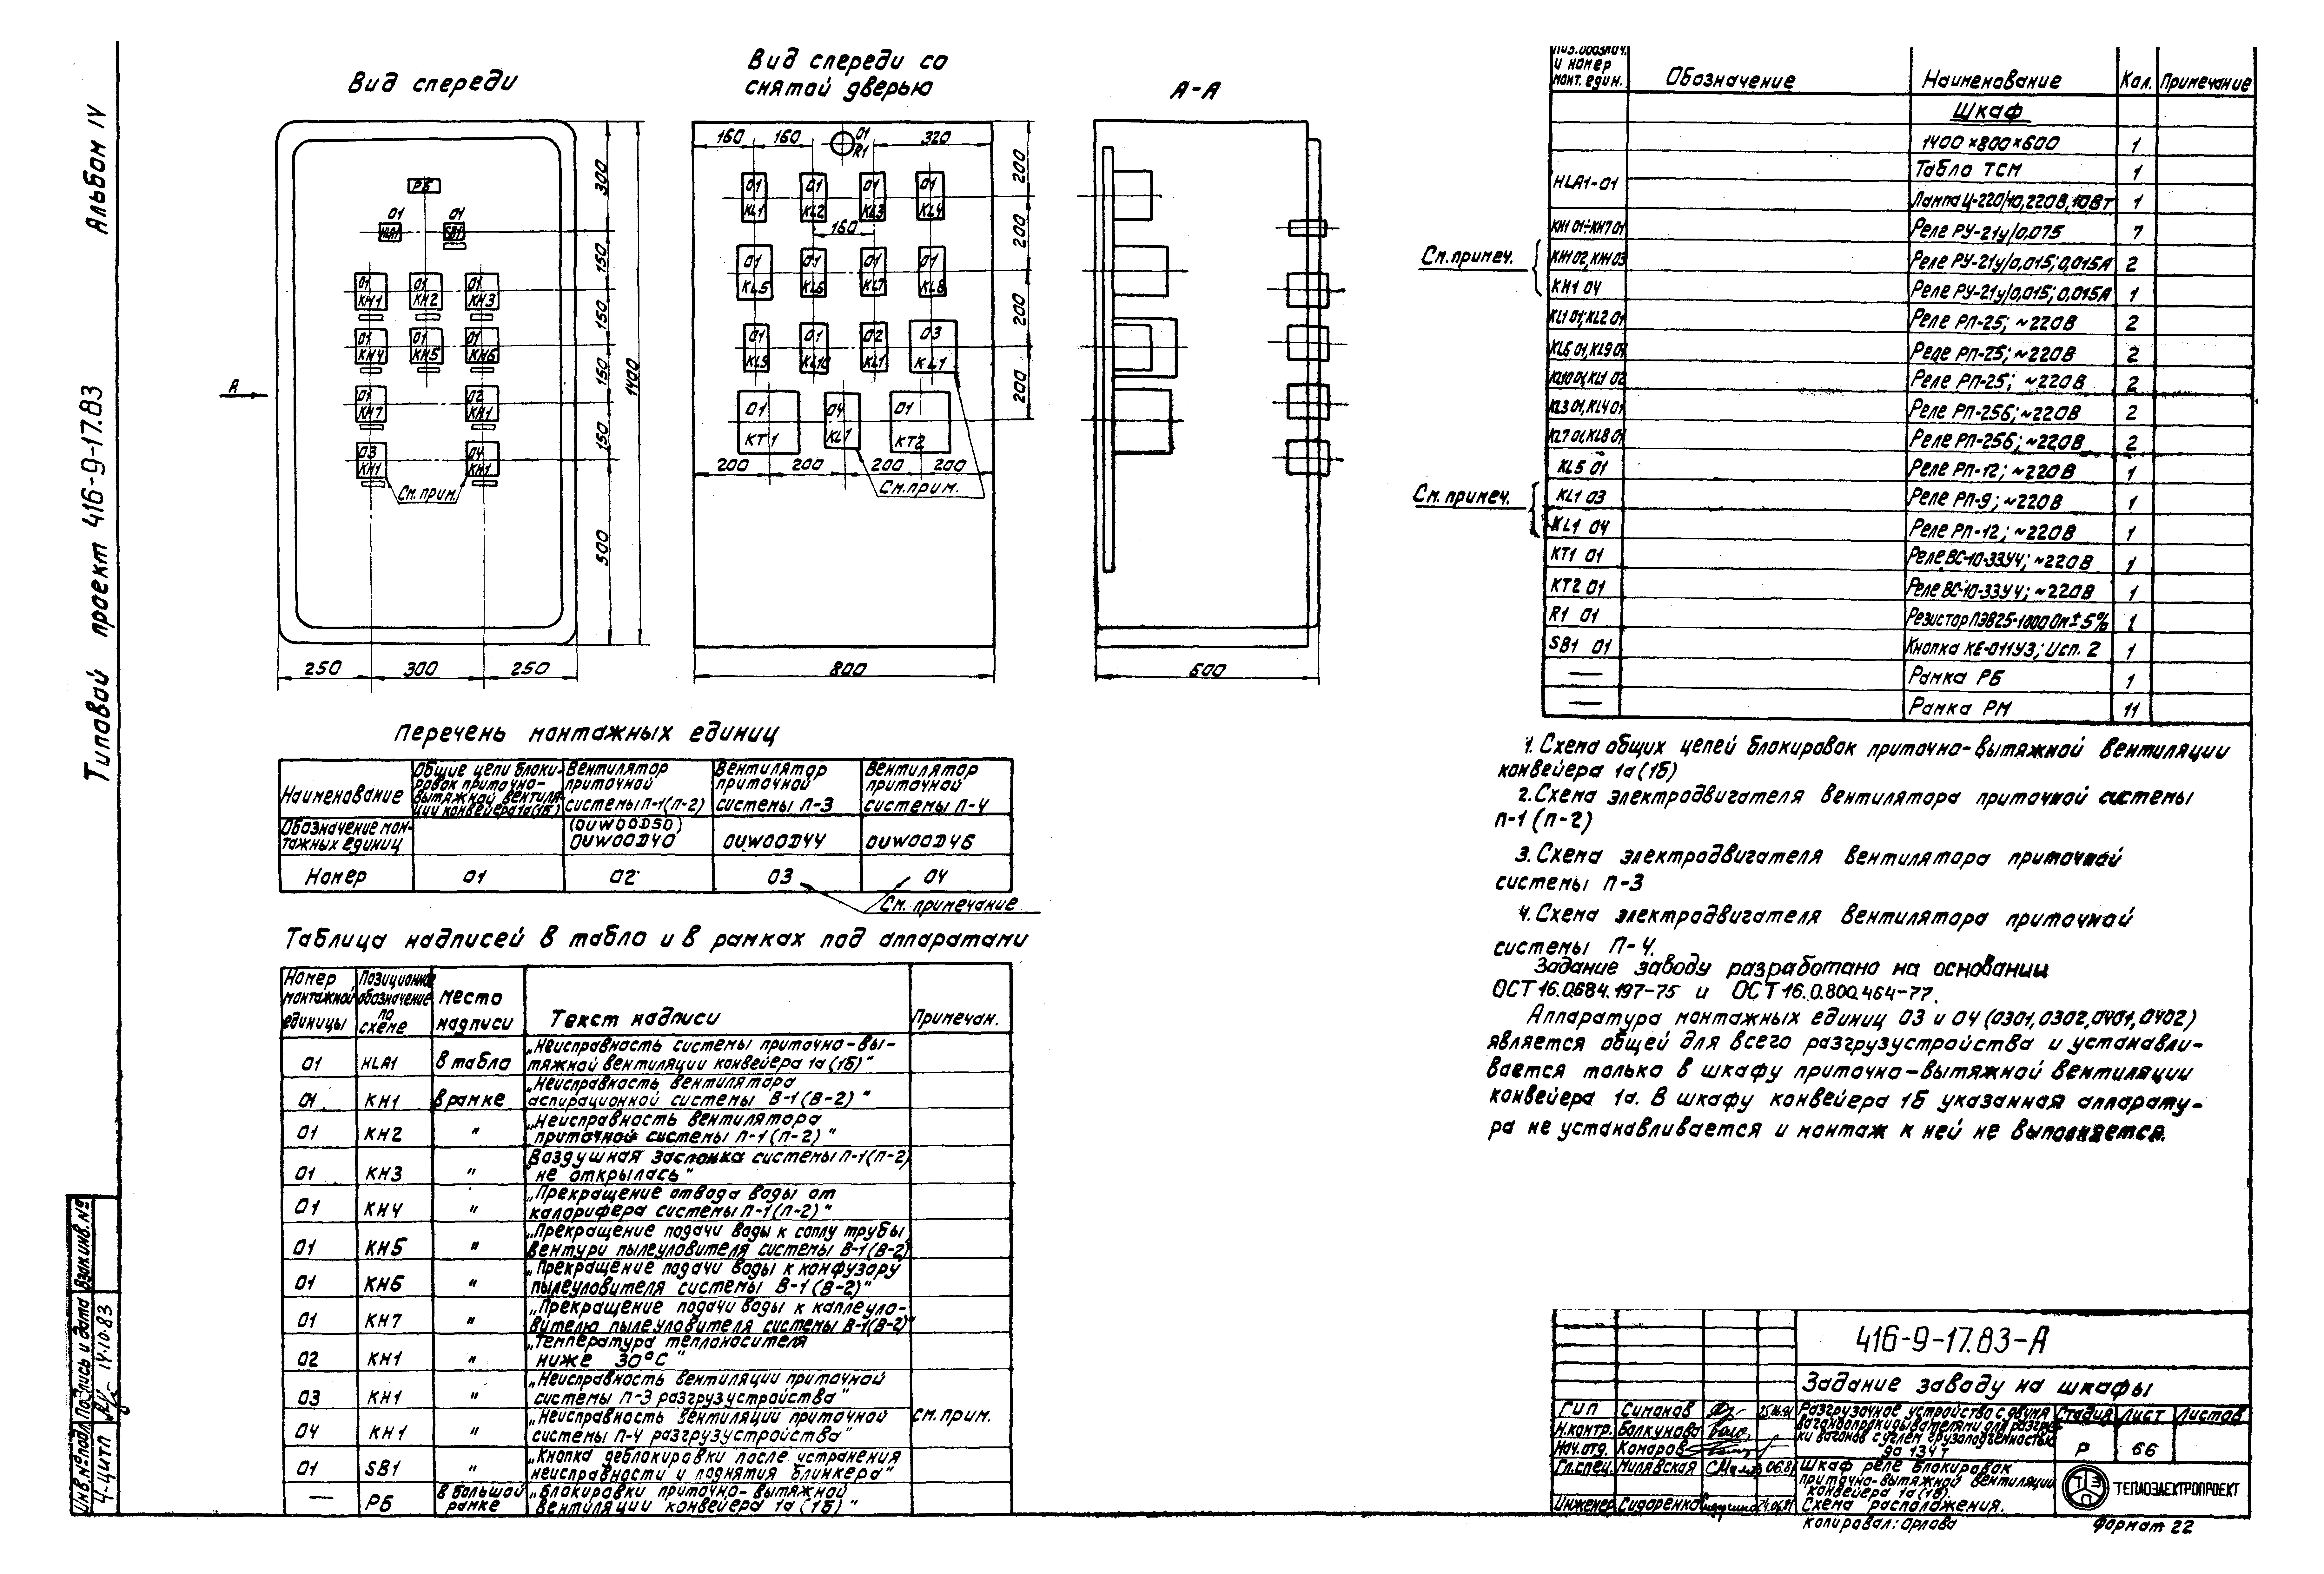 Типовой проект 416-9-17.83
Альбом IV
Вид спереди
Вид спереди со
снятой дверью
А-А
А
РБ
01
HLA1
01
SB1
01
КН1
01
КН2
01
КН3
01
КН4
01
КН5
01
КН6
01
КН7
02
КН1
03
КН1
04
КН1
См. прим.
300
150
150
150
150
500
1400
250
300
250
160
160
01
R1
320
01
KL1
01
KL2
01
KL3
01
KL4
160
01
KL5
01
KL6
01
KL7
01
KL8
01
KL9
01
KL10
02
KL1
03
KL1
01
КТ1
04
KL1
01
КТ2
200
200
200
200
См. прим.
200
200
200
200
800
600
Поз. обознач.
и номер
монт. един.
Обозначение
Наименование
Кол.
Примечание
Шкаф
1400×800×600 1
HLA1-01
Табло ТСМ 1
Лампа Ц-220/10, 220В, 10Вт 1
КН1 01÷КН7 01 Реле РУ-21у/0,075 7
См. примеч.
КН1 02, КН1 03 Реле РУ-21у/0,015; 0,015А 2
КН1 04 Реле РУ-21у/0,015; 0,015А 1
KL1 01; KL2 01 Реле РП-25; ~220В 2
KL6 01, KL9 01 Реле РП-25; ~220В 2
KL10 01, KL1 02 Реле РП-25; ~220В 2
KL3 01, KL4 01 Реле РП-256; ~220В 2
KL7 01, KL8 01 Реле РП-256; ~220В 2
KL5 01 Реле РП-12; ~220В 1
См. примеч.
KL1 03 Реле РП-9; ~220В 1
KL1 04 Реле РП-12; ~220В 1
КТ1 01 Реле ВС-10-33У4; ~220В 1
КТ2 01 Реле ВС-10-33У4; ~220В 1
R1 01 Резистор ПЭВ25-1000 Ом ± 5% 1
SB1 01 Кнопка КЕ-011У3; Исп. 2 1
— Рамка РБ 1
— Рамка РМ 11
Перечень монтажных единиц
Наименование
Общие цепи блоки-
ровок приточно-
вытяжной вентиля-
ции конвейера 1а(1Б)
Вентилятор
приточной
системы П-1(П-2)
Вентилятор
приточной
системы П-3
Вентилятор
приточной
системы П-4
Обозначение мон-
тажных единиц
(0UW00D50)
0UW00D40
0UW00D44
0UW00D46
Номер 01 02 03 04
См. примечание
Таблица надписей в табло и в рамках под аппаратами
Номер
монтажной
единицы
Позиционное
обозначение
по
схеме
Место
надписи
Текст надписи
Примечан.
01 HLA1 В табло
„Неисправность системы приточно-вы-
тяжной вентиляции конвейера 1а(1Б)"
01 КН1 В рамке
„Неисправность вентилятора
аспирационной системы В-1(В-2)"
01 КН2 "
„Неисправность вентилятора
приточной системы П-1(П-2)"
01 КН3 "
Воздушная заслонка системы П-1(П-2)
не открылась"
01 КН4 "
„Прекращение отвода воды от
калорифера системы П-1(П-2)"
01 КН5 "
„Прекращение подачи воды к соплу трубы
вентури пылеуловителя системы В-1(В-2)
01 КН6 "
„Прекращение подачи воды к конфузору
пылеуловителя системы В-1(В-2)"
01 КН7 "
„Прекращение подачи воды к каплеуло-
вителю пылеуловителя системы В-1(В-2)"
02 КН1 "
„Температура теплоносителя
ниже 30°С"
03 КН1 "
„Неисправность вентиляции приточной
системы П-3 разгрузустройства"
04 КН1 "
„Неисправность вентиляции приточной
системы П-4 разгрузустройства"
См. прим.
01 SB1 "
„Кнопка деблокировки после устранения
неисправности и поднятия блинкера"
— РБ В большой
рамке
„Блокировки приточно-вытяжной
вентиляции конвейера 1а(1Б)"
1. Схема общих цепей блокировок приточно-вытяжной вентиляции
конвейера 1а(1Б)
2. Схема электродвигателя вентилятора приточной системы
П-1(П-2)
3. Схема электродвигателя вентилятора приточной
системы П-3
4. Схема электродвигателя вентилятора приточной
системы П-4.
Задание заводу разработано на основании
ОСТ 16.0.684.197-75 и ОСТ 16.0.800.464-77.
Аппаратура монтажных единиц 03 и 04 (0301, 0302, 0401, 0402)
является общей для всего разгрузустройства и устанавли-
вается только в шкафу приточно-вытяжной вентиляции
конвейера 1а. В шкафу конвейера 1Б указанная аппарату-
ра не устанавливается и монтаж к ней не выполняется.
416-9-17.83-А
Задание заводу на шкафы
ГИП Симонов
Н.контр. Болкунова
Нач.отд. Комаров
Гл.спец. Милявская 06.81
Инженер Сидоренко 24.06.81
Разгрузочное устройство с двумя
вагоноопрокидывателями для разгруз-
ки вагонов с углем грузоподъемностью
до 134 т
Стадия Лист Листов
Р 66
Шкаф реле блокировок
приточно-вытяжной вентиляции
конвейера 1а(1Б).
Схема расположения.
ТЭП
ТЕПЛОЭЛЕКТРОПРОЕКТ
Копировал: Орлова
Формат 22
Инв.№подл. Подпись и дата Взам.инв.№
14.10.83